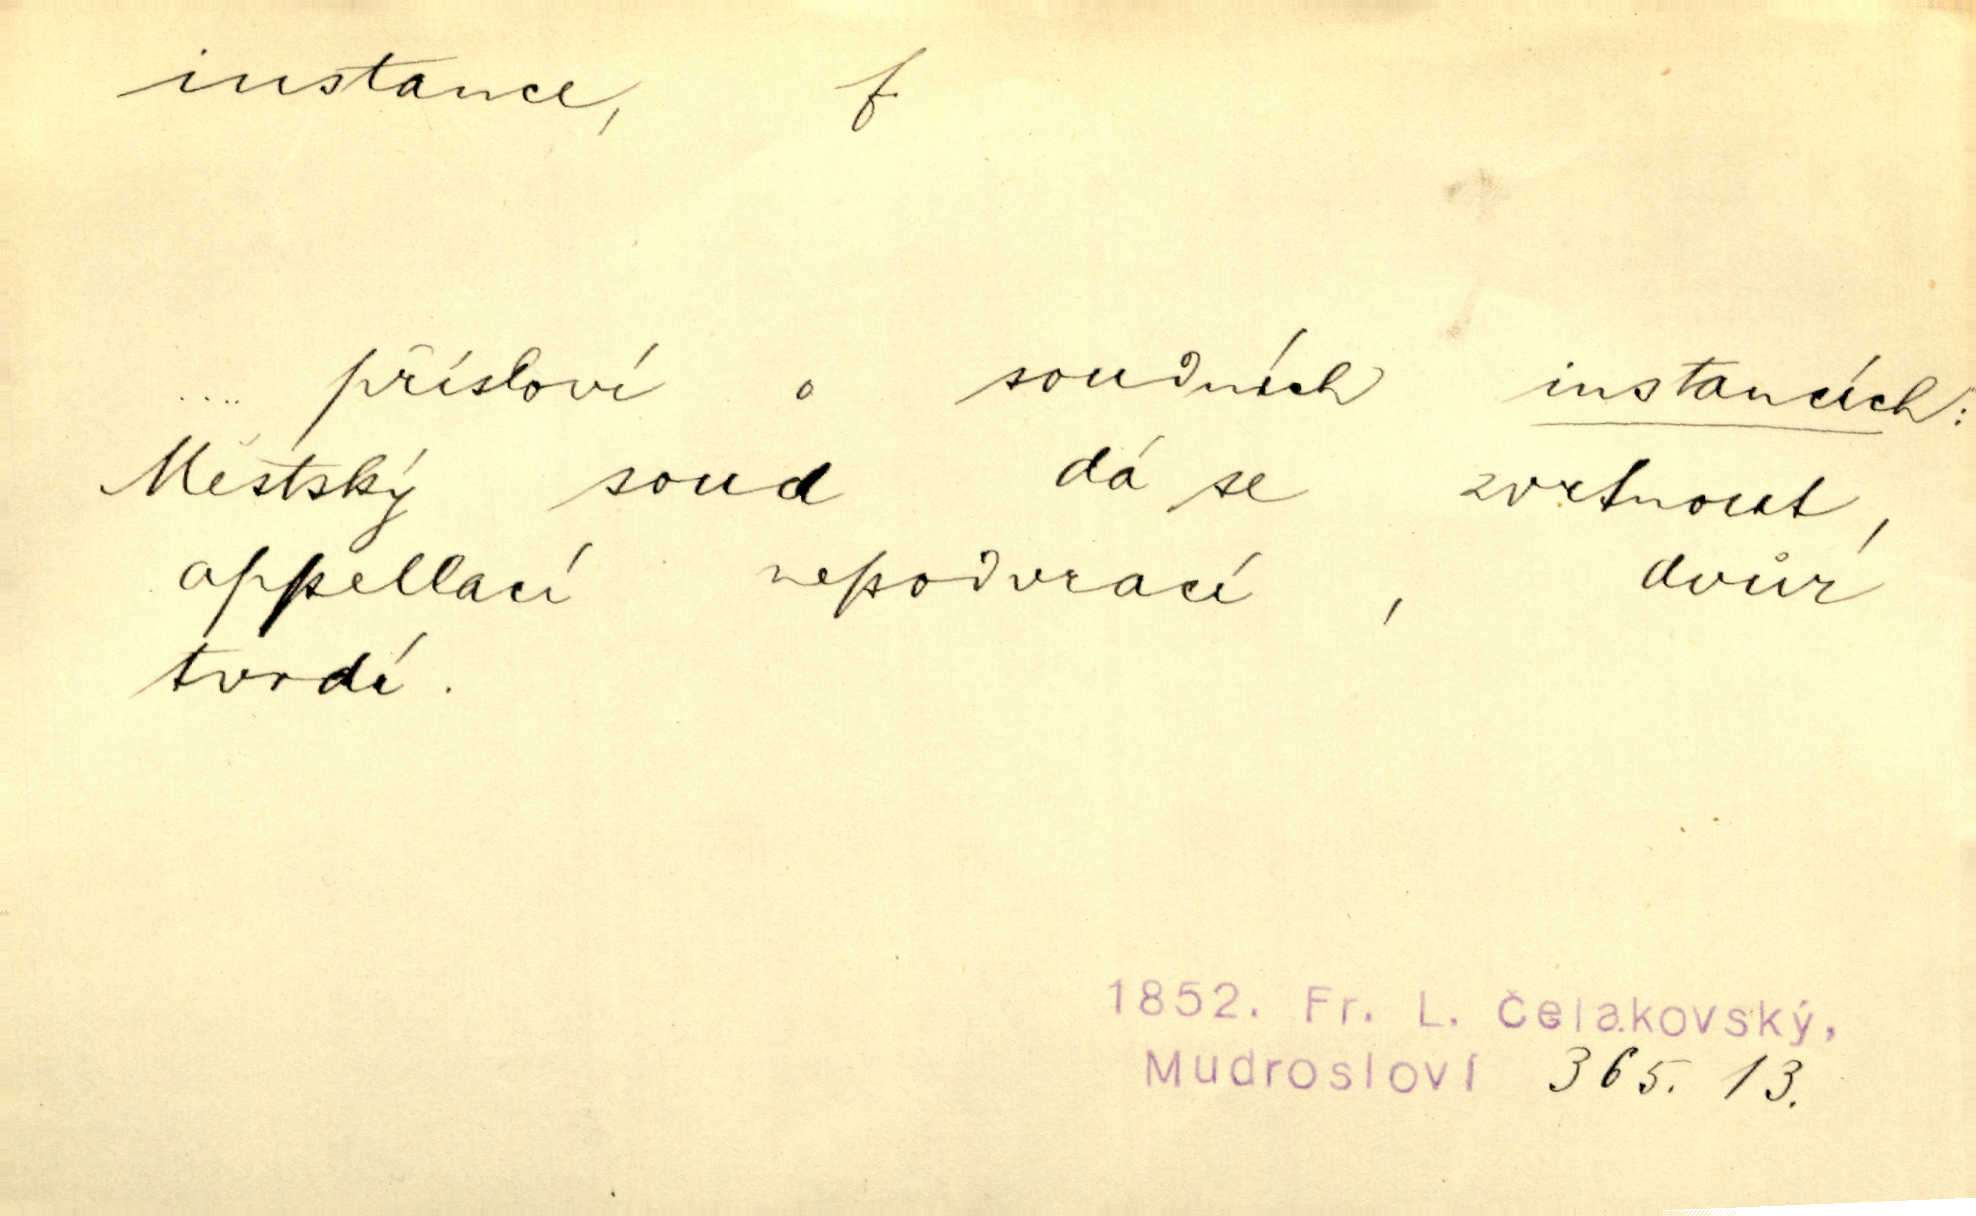 instance, f.
.... přísloví o soudních instancích:
Městský soud dá se zvrtnout,
appellací nepodvrací, dvůr
tvrdí.
1852. Fr. L. Čelakovský,
Mudrosloví 365. 13.